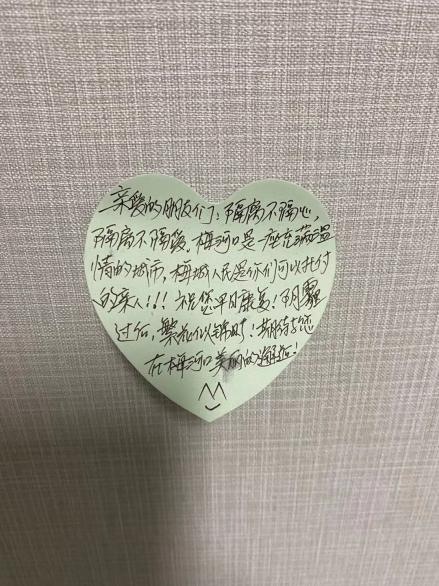 亲爱的朋友们：隔离不隔心，
隔离不隔爱，梅河口是一座充满温
情的城市，梅城人民是你们可以托付
的亲人!!! 祝您早日康复！阴霾
过后，繁花似锦时！期待与您
在梅河口美丽的邂逅！